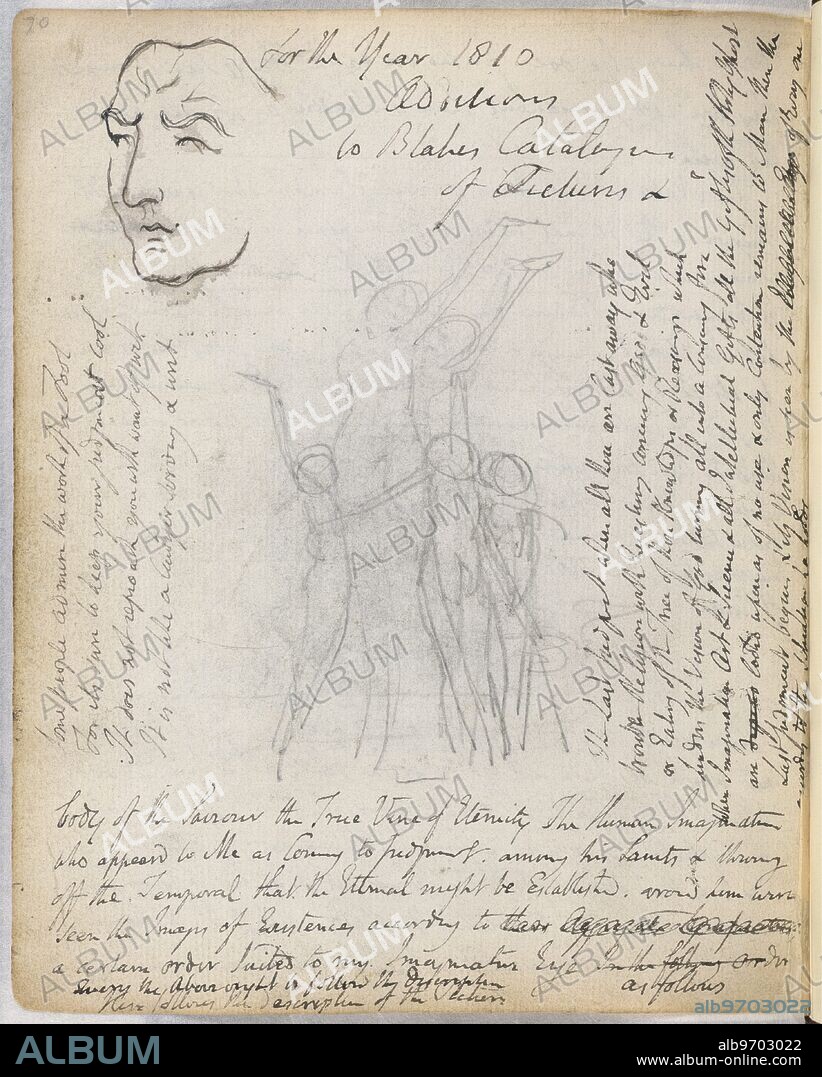 70
For the Year 1810
Additions
to Blakes Catalogue
of Pictures &
Some people admire the work of a Fool
For its sure to keep your judgment cool
It does not reproach you with want of wit
It is not like a lawyer serving a writ
The Last Judgment when all those are Cast away who
trouble Religion with Questions concerning Good & Evil
or Eating of the Tree of those Knowledges or Reasonings which
hinder the Vision of God turning all into a Consuming fire
When Imagination Art & Science & all Intellectual Gifts all the Gifts of the Holy Ghost
are lookd upon as of no use & only Contention remains to Man then the
Last Judgment begins & its Vision is seen by the of Every one
according to the situation he holds
body of the Saviour the True Vine of Eternity The Human Imagination
who appeard to Me as Coming to Judgment. among his Saints & throwing
off the Temporal that the Eternal might be Establishd. around him were
seen the Images of Existences according to
a certain order suited to my Imaginative Eye In the following order
as follows
Query the Above ought to follow the description
Here follows the description of the Picture
ALBUM
alb9703022
ALBUM
alb9703022
www.album-online.com